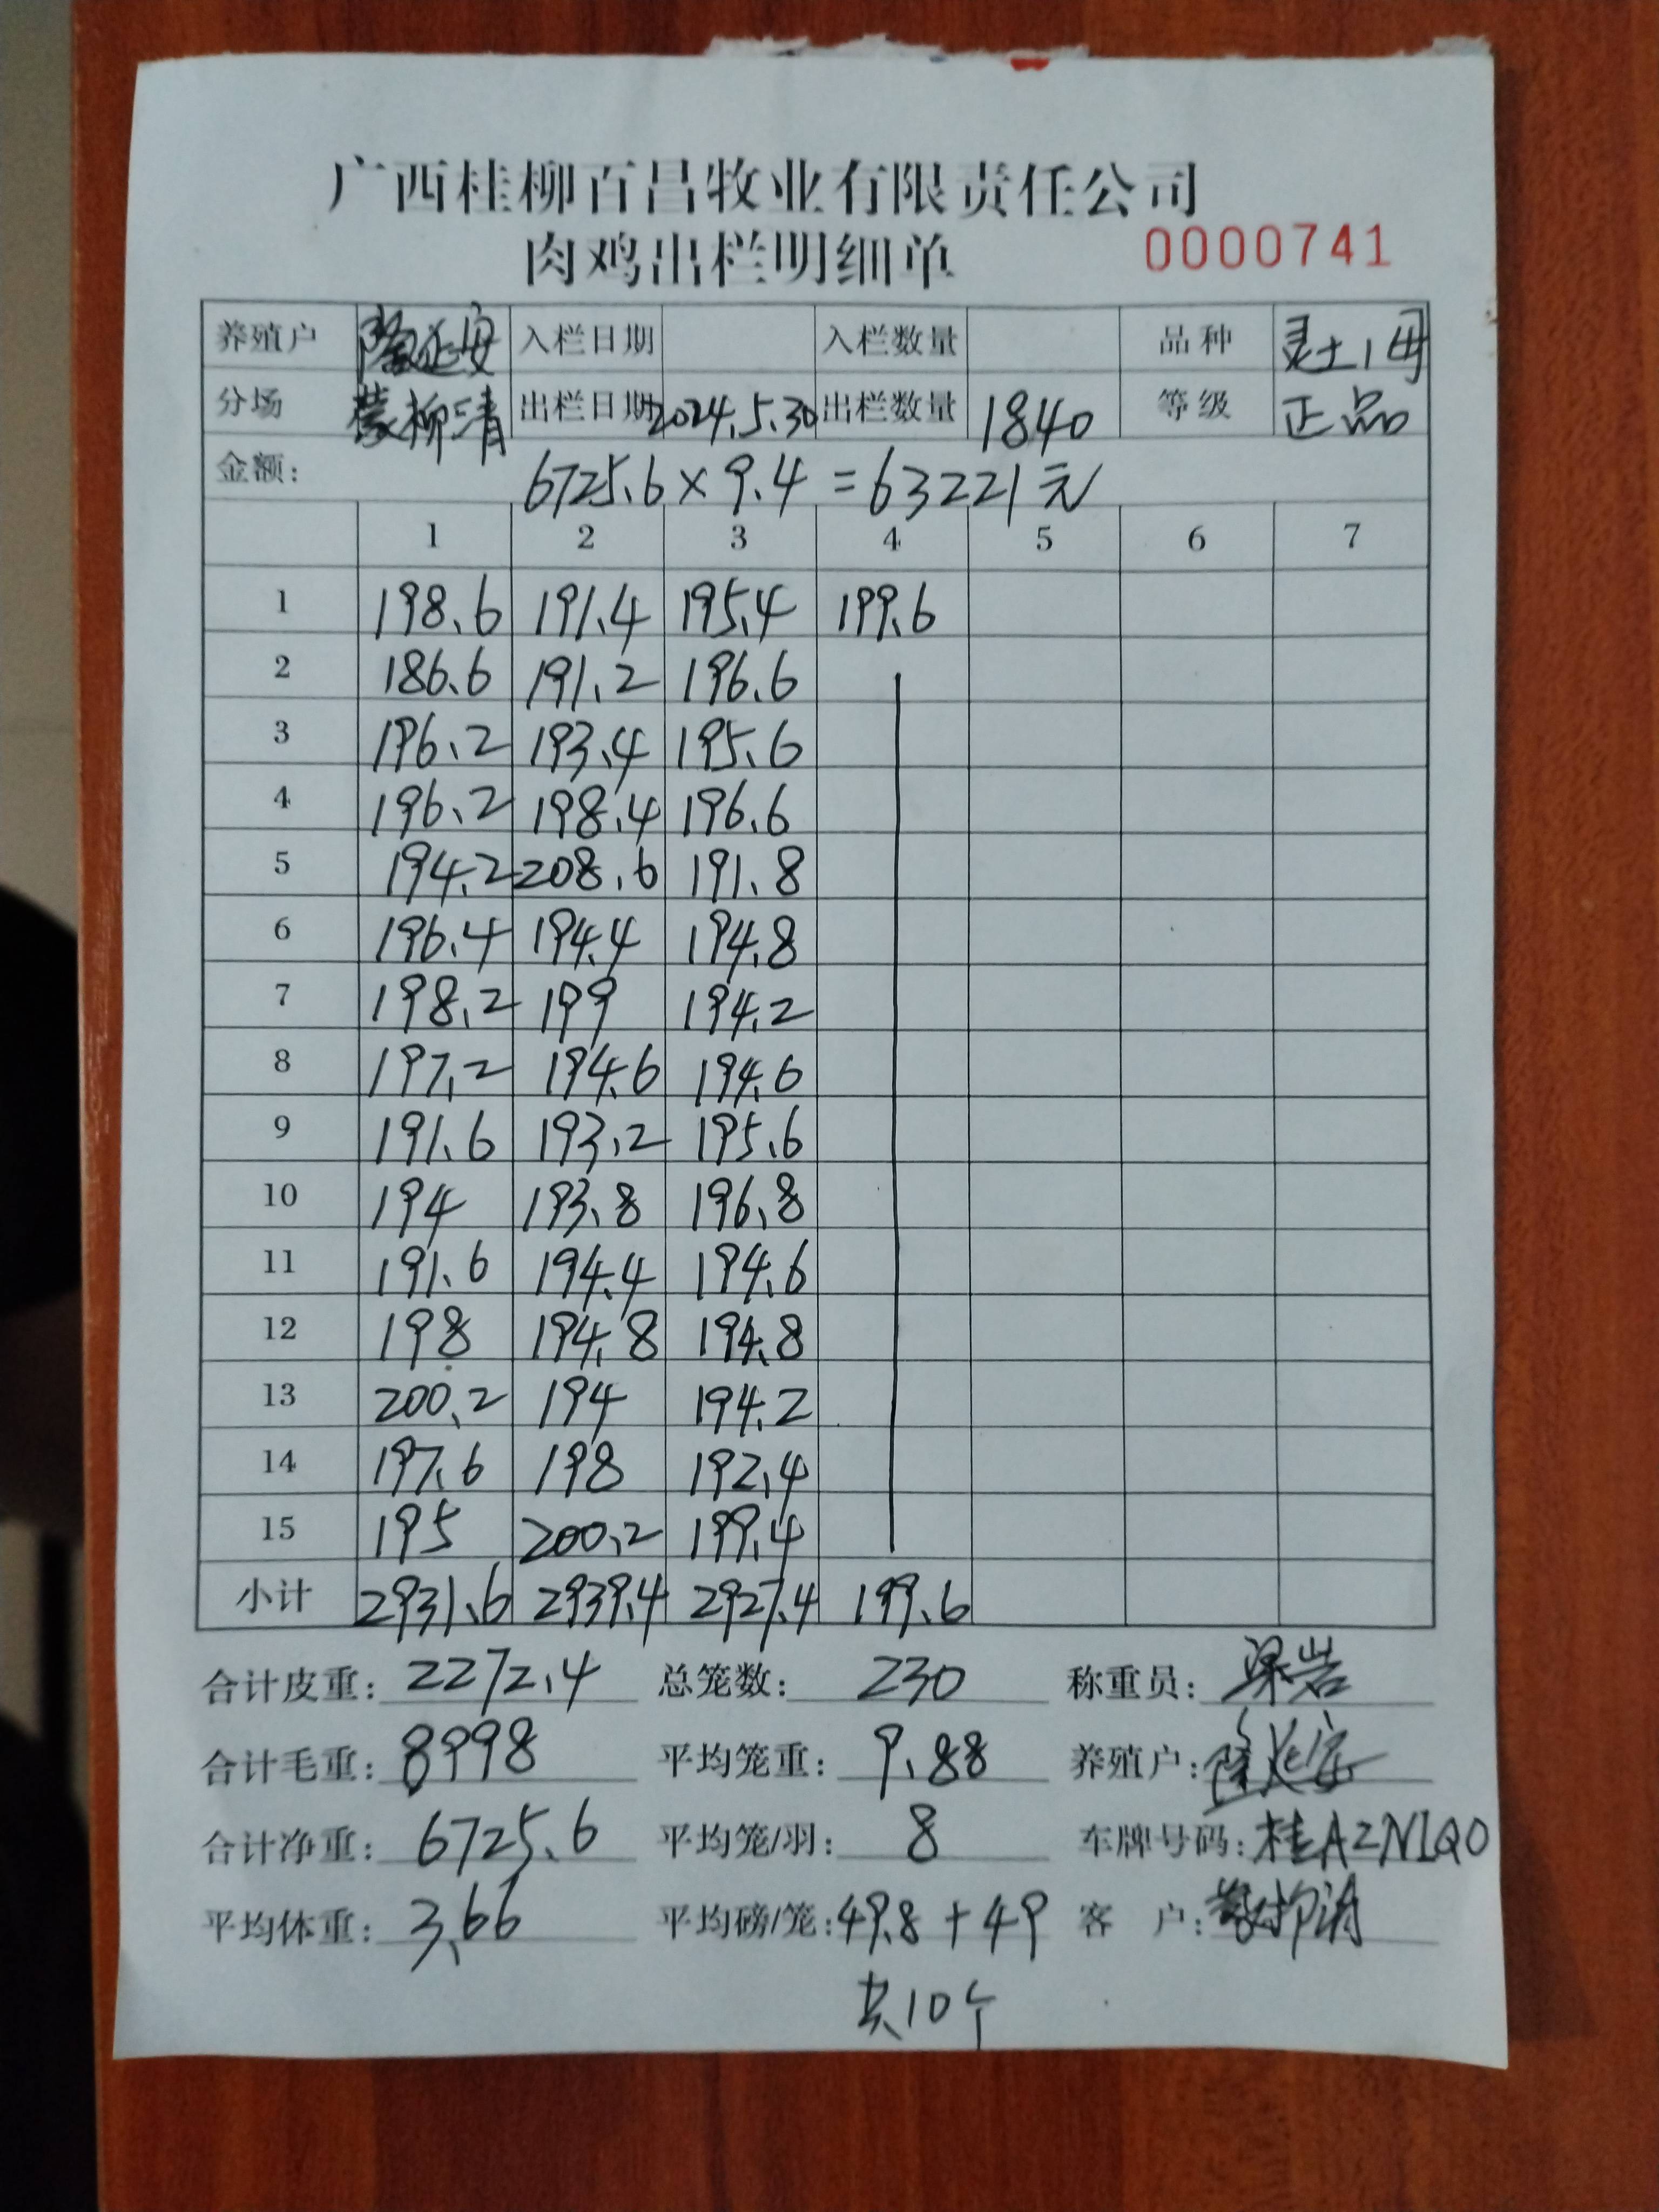 广西桂柳百昌牧业有限责任公司
肉鸡出栏明细单 0000741
养殖户 隆延安 入栏日期 入栏数量 品种 灵土1母
分场 蒙柳清 出栏日期 2024.5.30 出栏数量 1840 等级 正品
金额: 6725.6×9.4=63221元
1 2 3 4 5 6 7
1 198.6 191.4 195.4 199.6
2 186.6 191.2 196.6
3 196.2 193.4 195.6
4 196.2 198.4 196.6
5 194.2 208.6 191.8
6 196.4 194.4 194.8
7 198.2 199 194.2
8 197.2 194.6 194.6
9 191.6 193.2 195.6
10 194 193.8 196.8
11 191.6 194.4 194.6
12 198 194.8 194.8
13 200.2 194 194.2
14 197.6 198 192.4
15 195 200.2 199.4
小计 2931.6 2939.4 2927.4 199.6
合计皮重: 2272.4 总笼数: 230 称重员: 梁岩
合计毛重: 8998 平均笼重: 9.88 养殖户: 隆延安
合计净重: 6725.6 平均笼/羽: 8 车牌号码: 桂A2N1Q0
平均体重: 3.66 平均磅/笼: 49.8+49 客户: 蒙柳清
共10个